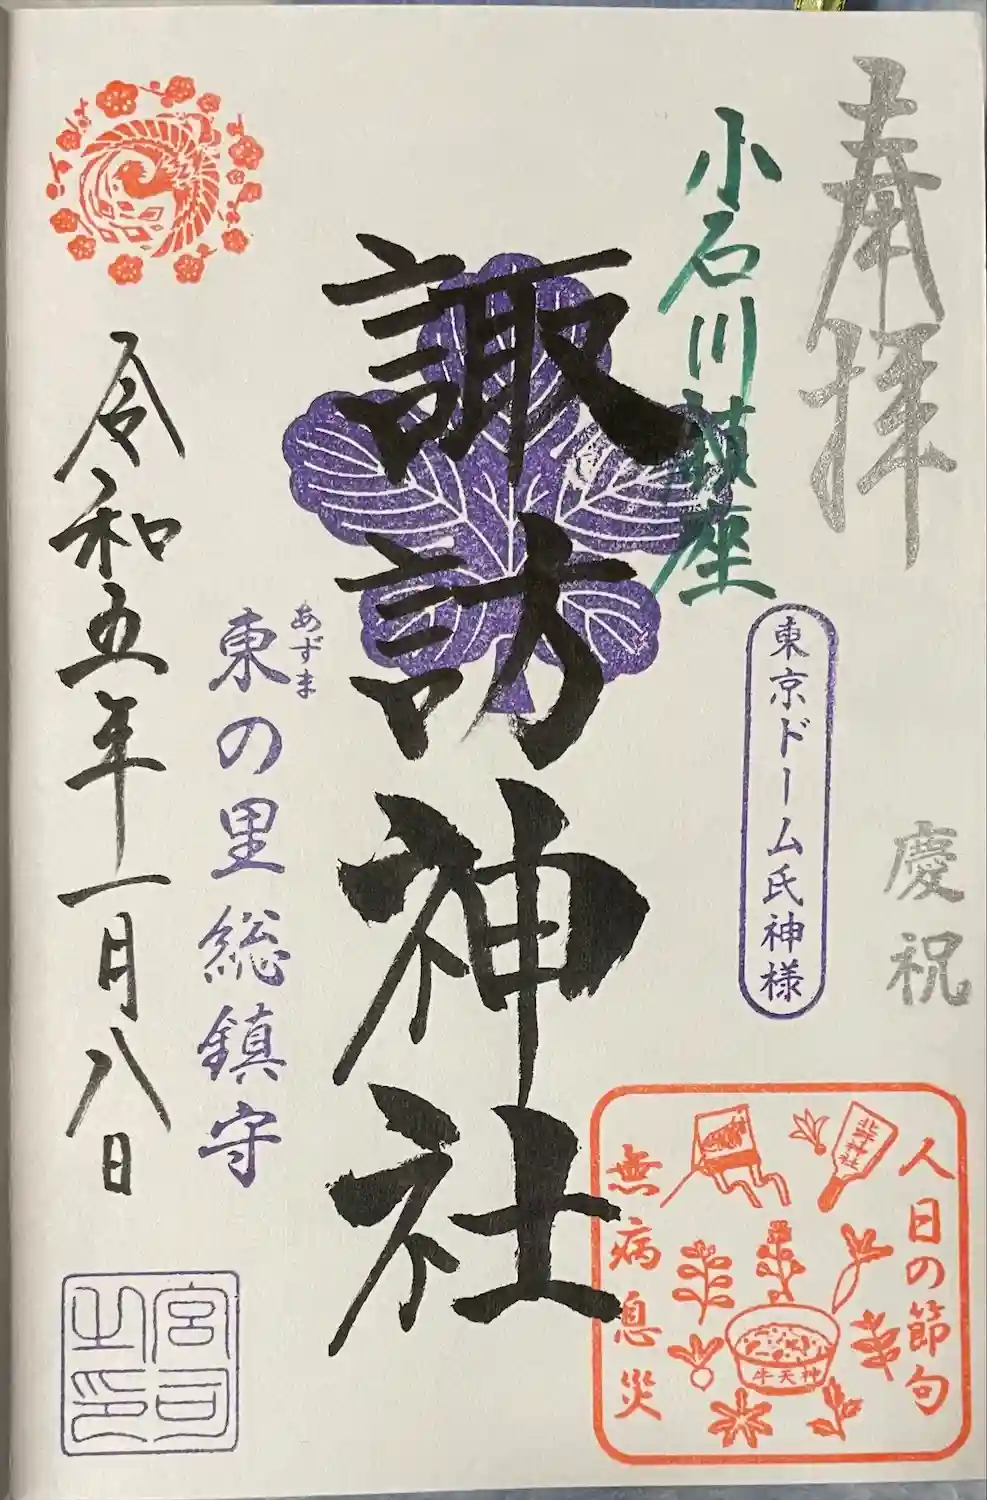 奉拝
慶祝
小石川鎮座
東京ドーム氏神様
人日の節句
無病息災
北野神社
牛天神
諏訪神社
あずま
東の里総鎮守
令和五年一月八日
宮司之印